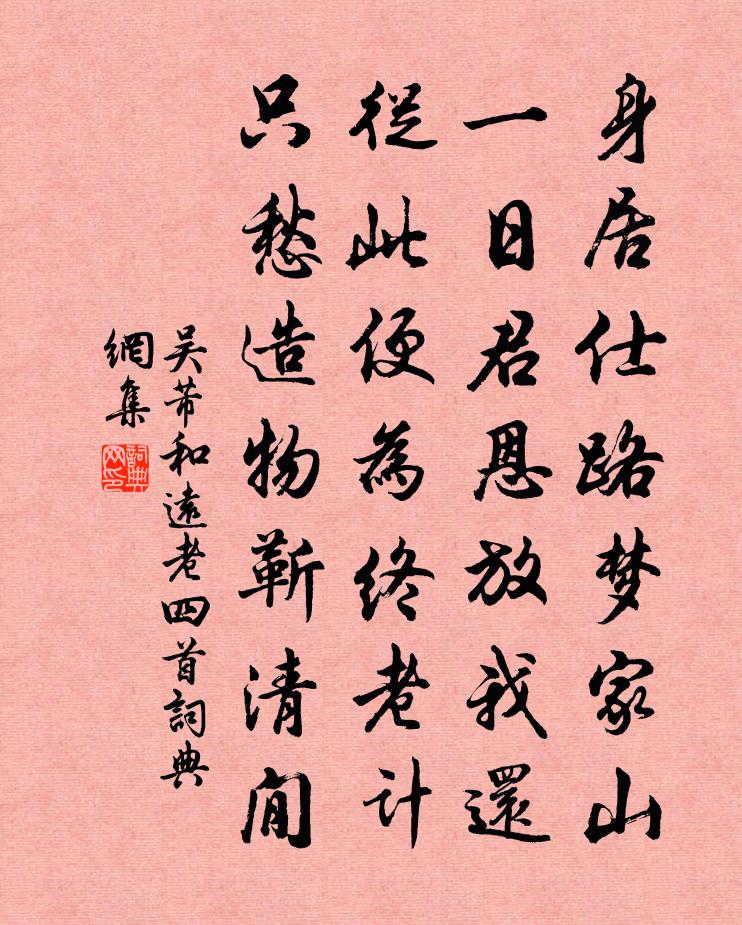 身居仕路梦家山
一日君恩放我還
從此便為終老計
只愁造物靳清閒
吴芾和遠老四首詞典
網集
詞典
网印